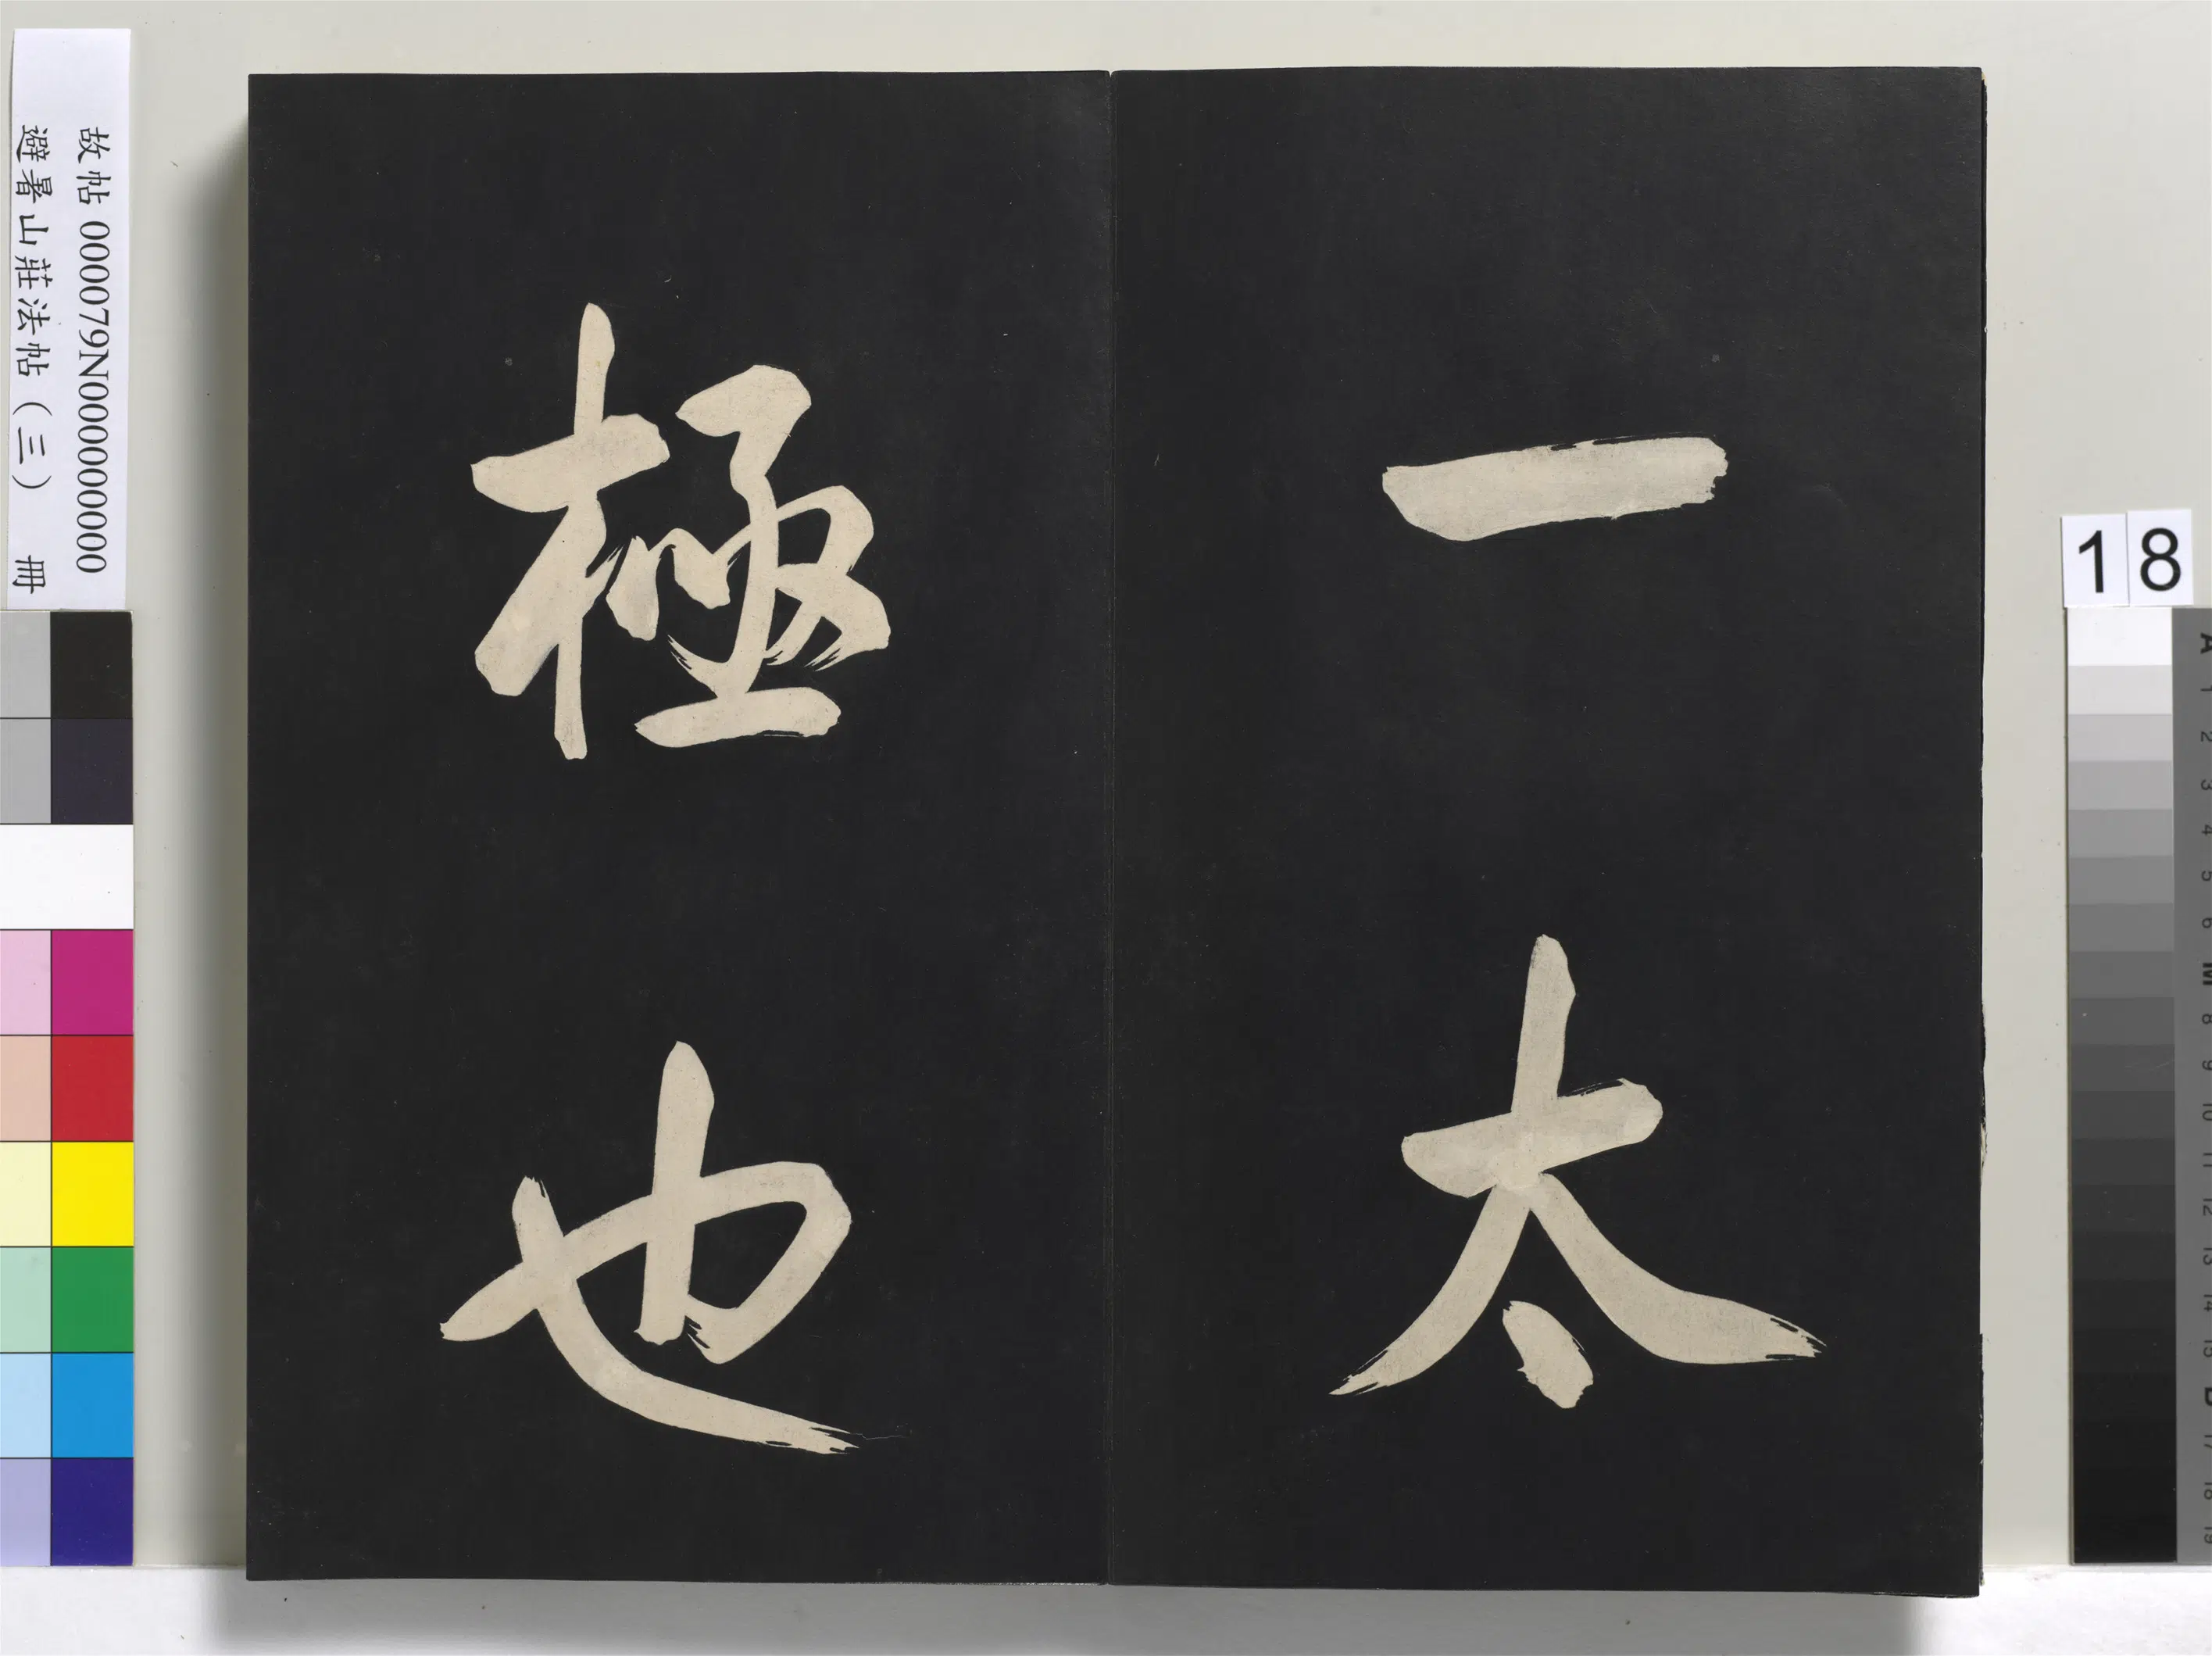 一太
極也
故帖 000079N000000000
避暑山莊法帖（三） 冊
18
A 1 2 3 4 5 6 M 8 9 10 11 12 13 14 15 B 17 18 19